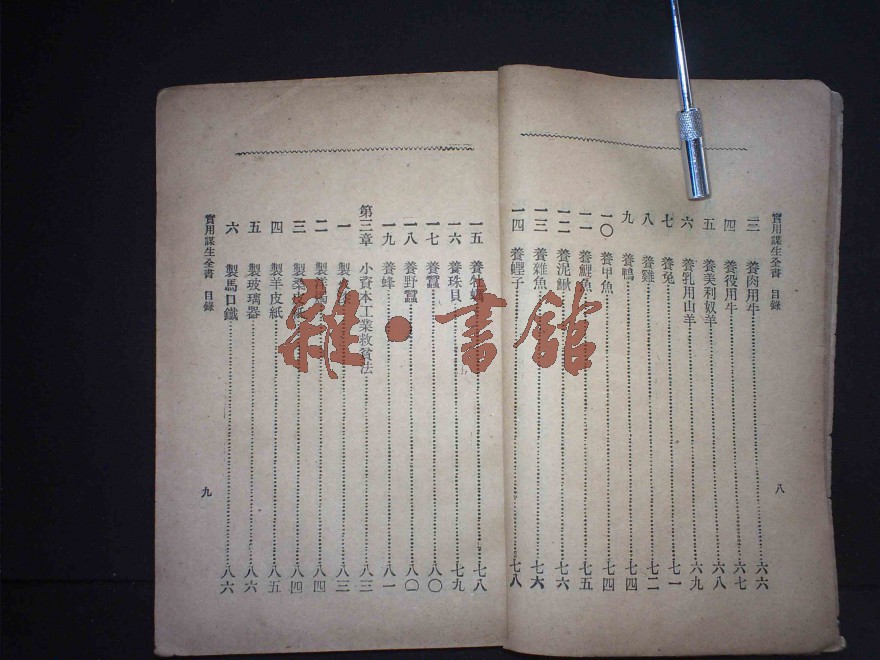 實用謀生全書 目錄
三 養肉用牛 六六
四 養役用牛 六七
五 養美利奴羊 六八
六 養乳用山羊 六九
七 養兔 七一
八 養雞 七二
九 養鴨 七四
一〇 養甲魚 七四
一一 養鯉魚 七五
一二 養泥鰍 七六
一三 養雜魚 七六
一四 養蟶子 七八
八
一五 養牡蠣 七八
一六 養珠貝 七九
一七 養蠶 八〇
一八 養野蠶 八〇
一九 養蜂 八一
第三章 小資本工業救貧法 八三
一 製 八三
二 製洋 八四
三 製桑皮紙 八四
四 製羊皮紙 八五
五 製玻璃器 八六
六 製馬口鐵 八六
實用謀生全書 目錄
九
雜·書館